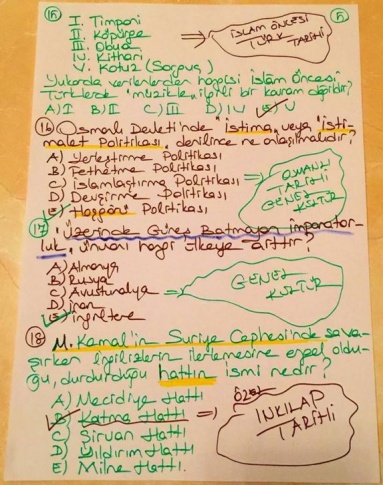 15 5
I. Timpani
II. Köpürge
III. Obua
IV. Kithari
V. Kotuz (Sorguç)
İSLAM ÖNCESİ
TÜRK TARİHİ
Yukarda verilenlerden hangisi İslâm Öncesi
Türklerde "müzikle" ilgili bir kavram değildir?
A) I B) II C) III D) IV E) V
16) Osmanlı Devleti'nde "İstima" veya "isti-
malet Politikası, denilince ne anlaşılmalıdır?
A) Yerleştirme Politikası
B) Fethetme Politikası
C) İslamlaştırma Politikası
D) Devşirme Politikası
E) Hoşgörü Politikası
OSMANLI
TARİHİ
GENEL
KÜLTÜR
17) "Üzerinde Güneş Batmayan imparator-
luk, ünvanı hangi ülkeye aittir?
A) Almanya
B) Rusya
C) Avusturalya
D) İran
E) İngiltere
GENEL
KÜLTÜR
18 M. Kamal'in Suriye Cephesi'nde sava-
şırken İngilizlerin ilerlemesine engel oldu-
ğu, durdurduğu hattın ismi nedir?
A) Mecidiye Hattı
B) Katma Hattı
C) Şirvan Hattı
D) Yıldırım Hattı
E) Milne Hattı.
ÖZEL
INKILAP
TARİHİ